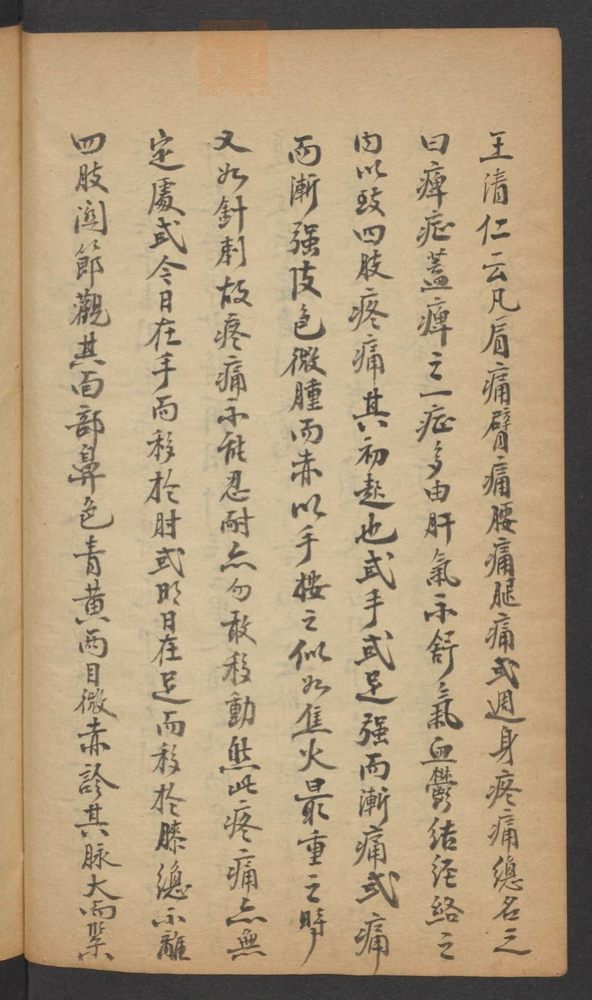 王清仁云凡肩痛臂痛腰痛腿痛或週身疼痛總名之
曰痺症蓋痺之一症多由肝氣不舒氣血鬱結經絡之
内以致四肢疼痛其初起也或手或足强而漸痛或痛
而漸强皮色微腫而赤以手按之似如焦火最重之時
又如針刺故疼痛不能忍耐亦勿敢移動然此疼痛亦無
定處或今日在手而移於肘或明日在足而移於膝總不離
四肢関節觀其面部鼻色青黄兩目微赤診其脉大而緊